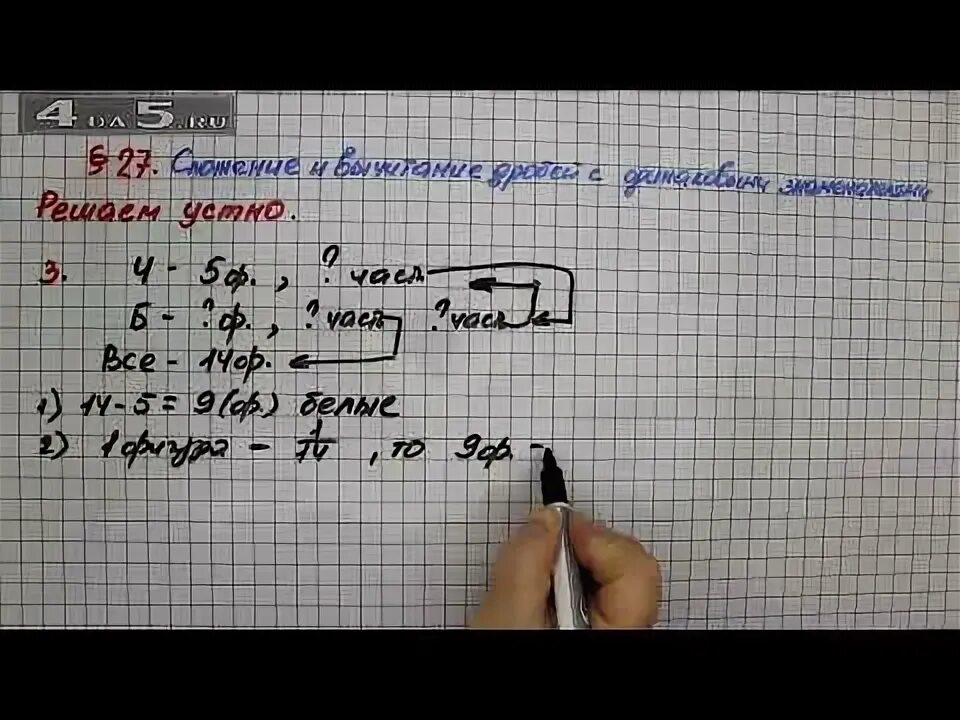 4 DA 5.RU
§ 27. Сложение и вычитание дробей с одинаковыми знаменателями
Решаем устно.
3. Ч - 5ф., ? часть
Б - ? ф., ? часть ? часть
Все - 14ф.
1) 14 - 5 = 9 (ф.) белые
2) 1 фигура - 1/14, то 9ф. -